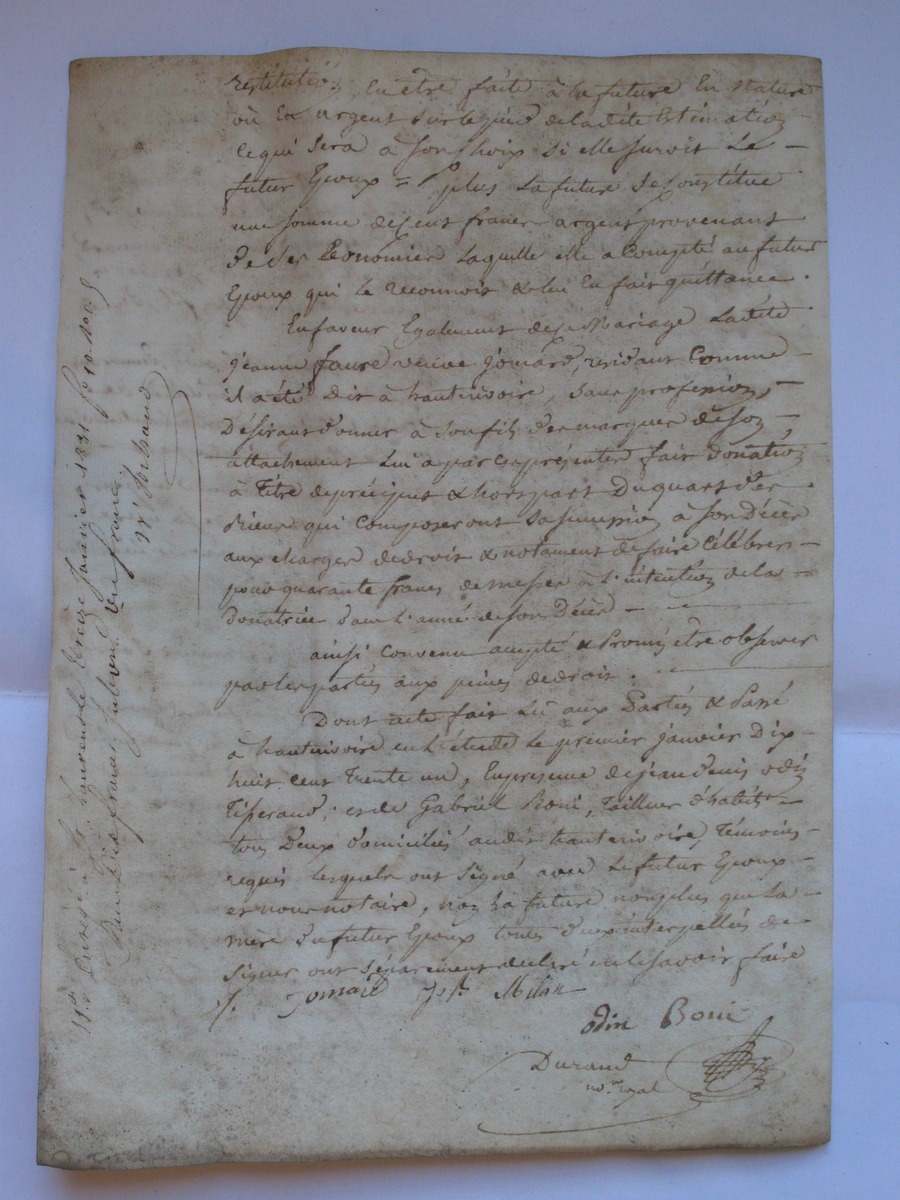 restitution En être faite à la future En nature
ou En argent sur le pied de ladite Estimation
ce qui sera à son choix si elle survit Le
futur Epoux = plus La future se constitue
une somme de cent francs argent provenant
de ses Economies Laquelle elle a compté au futur
Epoux qui le reconnoit & lui En fait quittance.
En faveur Egalement de ce Mariage Ladite
jeanne faure veuve jomard, residant Comme
il a été dit à hauterivoire, sans profession,
Désirant donner à son fils des marques de son
attachement Lui a par ces présentes fait Donation
à Titre de préciput & hors part Du quart des
Biens qui composeront sa succession à Son Décès
aux charges de droit & notament de faire Célébrer
pour quarante francs de messes à L'intention de la
Donatrice dans L'anné de son Décès
ainsi convenu accepté & Promis être observer
par les parties aux peines de droit.
Dont acte fait Lu aux Parties & Passé
à hauterivoire en L'étude Le premier janvier Dix
huit cent trente un, En présence de jean denis odin
Tisserand, et de Gabriel Boni, Tailleur d'habits
tous Deux domiciliés audit hauterivoire, Témoins
requis lesquels ont Signé avec Le futur Epoux
et nous notaire, non La future non plus que La
mère du futur Epoux toutes deux interpellées de
Signer ont séparement declaré ne le savoir faire
J. Jomard
odin Boni
Durand
no.re royal
Enregistré à St. Laurent le treize Janvier 1831 fo 19
Reçu Dix francs, subvent. Un franc